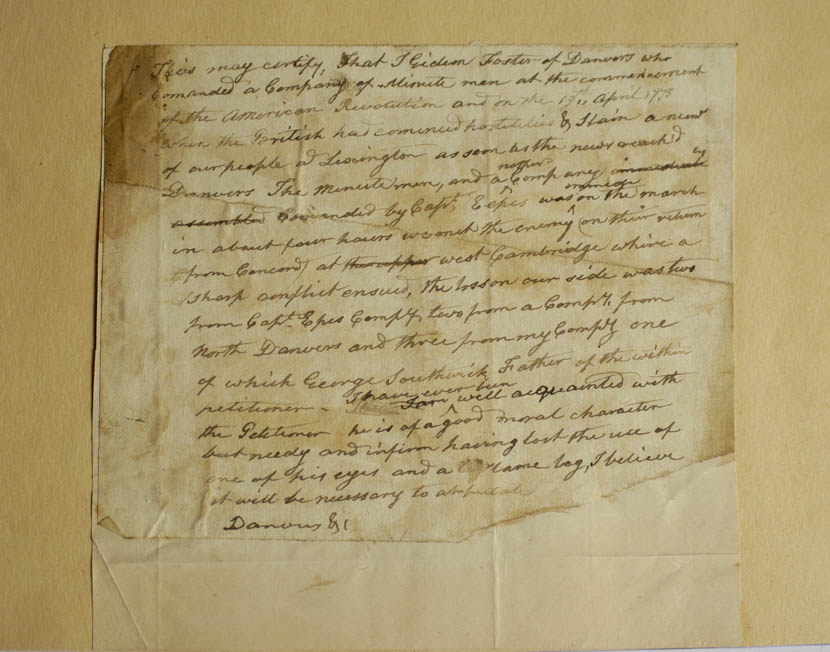 This may certify, That I Gideon Foster of Danvers who
Comanded a Company of Minute men at the commencement
of the American Revolution and on the 19th April 1775
when the British had comined hostilities & Slain a
of our people at Lexington as soon as the news reach'd
nother
Danvers The Minute men, and a Company immediately
assembled Comanded by Capt. Epes was on the march
in about four hours we met the enemy on their return
from Concord at the upper west Cambridge where a
sharp conflict ensued, the loss on our side was two
from Capt. Epes Compy, two from a Compy. from
North Danvers and three from my Compy one
of which George Southwick Father of the within
I have ever been
petitioner - I am well acquainted with
the Petitioner he is of a good moral character
but needy and infirm having lost the use of
one of his eyes and a lame leg, I believe
it will be necessary to
Danvers &c